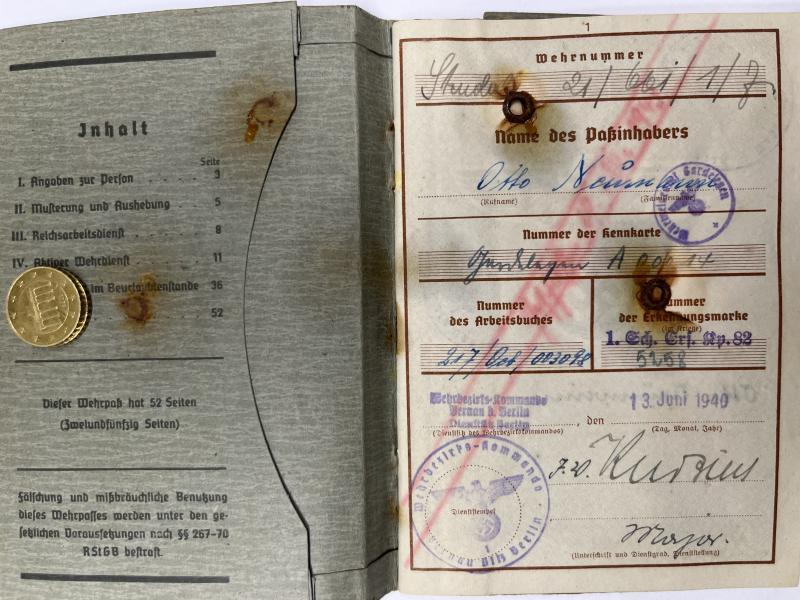 Inhalt
Seite
I. Angaben zur Person . . . . . 3
II. Musterung und Aushebung . . 5
III. Reichsarbeitsdienst . . . . . 8
IV. Aktiver Wehrdienst . . . . 11
im Beurlaubtenstande 36
52
Dieser Wehrpaß hat 52 Seiten
(Zweiundfünfzig Seiten)
Fälschung und mißbräuchliche Benutzung
dieses Wehrpasses werden unter den ge-
setzlichen Voraussetzungen nach §§ 267-70
RStGB bestraft.
1
Wehrnummer
21/ 1/7
Name des Paßinhabers
Otto Neumann
(Rufname) (Familienname)
Nummer der Kennkarte
Gardelegen A
Nummer
des Arbeitsbuches
217/
Nummer
der Erkennungsmarke
(im Kriege)
1. Sch. Ers. Kp. 82
5258
Wehrbezirks-Kommando
Bernau b. Berlin
Dienstsitz Berlin , den 13. Juni 1940
(Dienstsitz des Wehrbezirkskommandos) (Tag, Monat, Jahr)
Wehrbezirks-Kommando
Dienststempel
J.V.
Major.
(Unterschrift und Dienstgrad, Dienststellung)